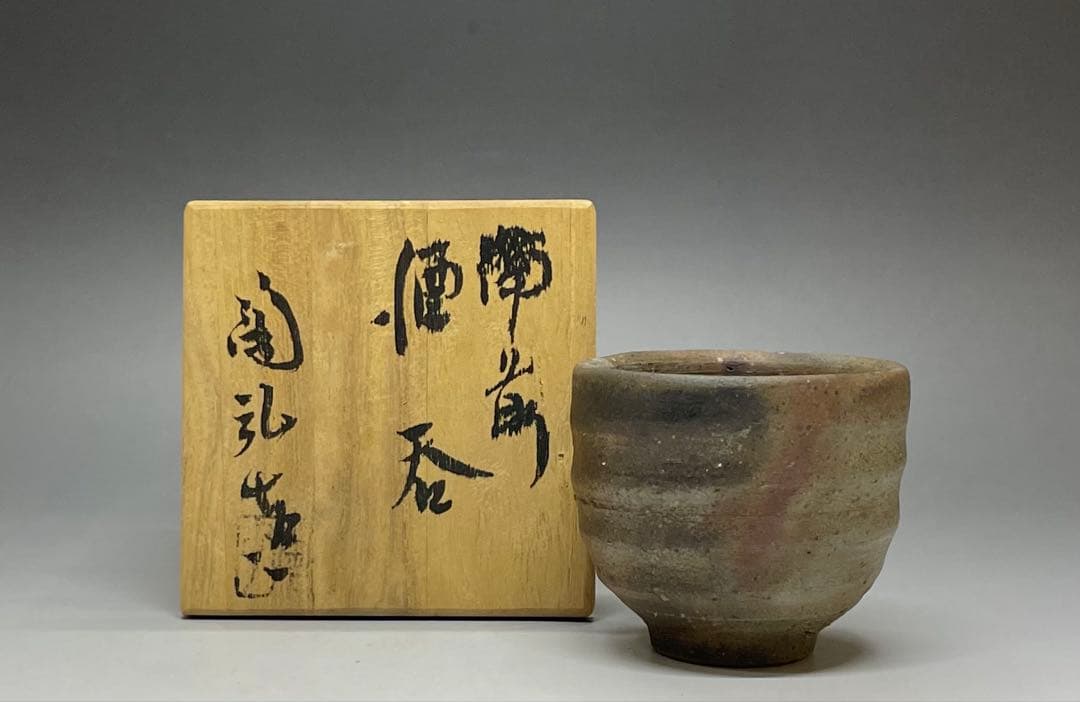 備前
酒呑
陶弘造